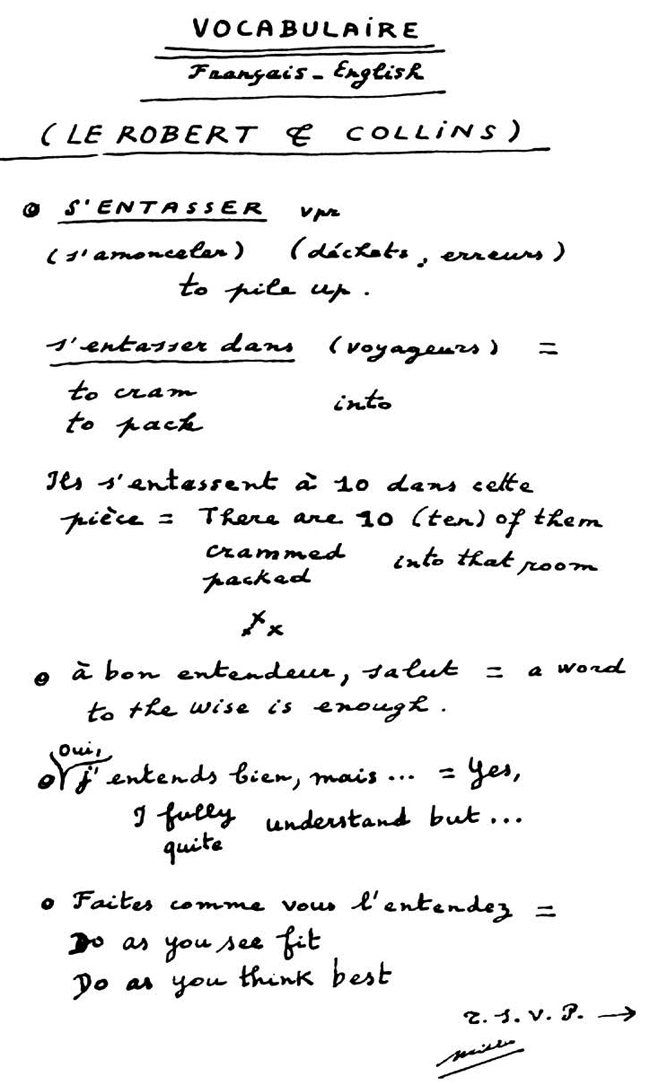 VOCABULAIRE
Français - English
(LE ROBERT & COLLINS)
S'ENTASSER vpr
(s'amonceler) (déchets, erreurs)
to pile up.
s'entasser dans (voyageurs) =
to cram
into
to pack
Ils s'entassent à 10 dans cette
pièce = There are 10 (ten) of them
crammed into that room
packed
à bon entendeur, salut = a word
to the wise is enough.
Oui,
j'entends bien, mais ... = Yes,
I fully understand but ...
quite
Faites comme vous l'entendez =
Do as you see fit
Do as you think best
T.S.V.P. →